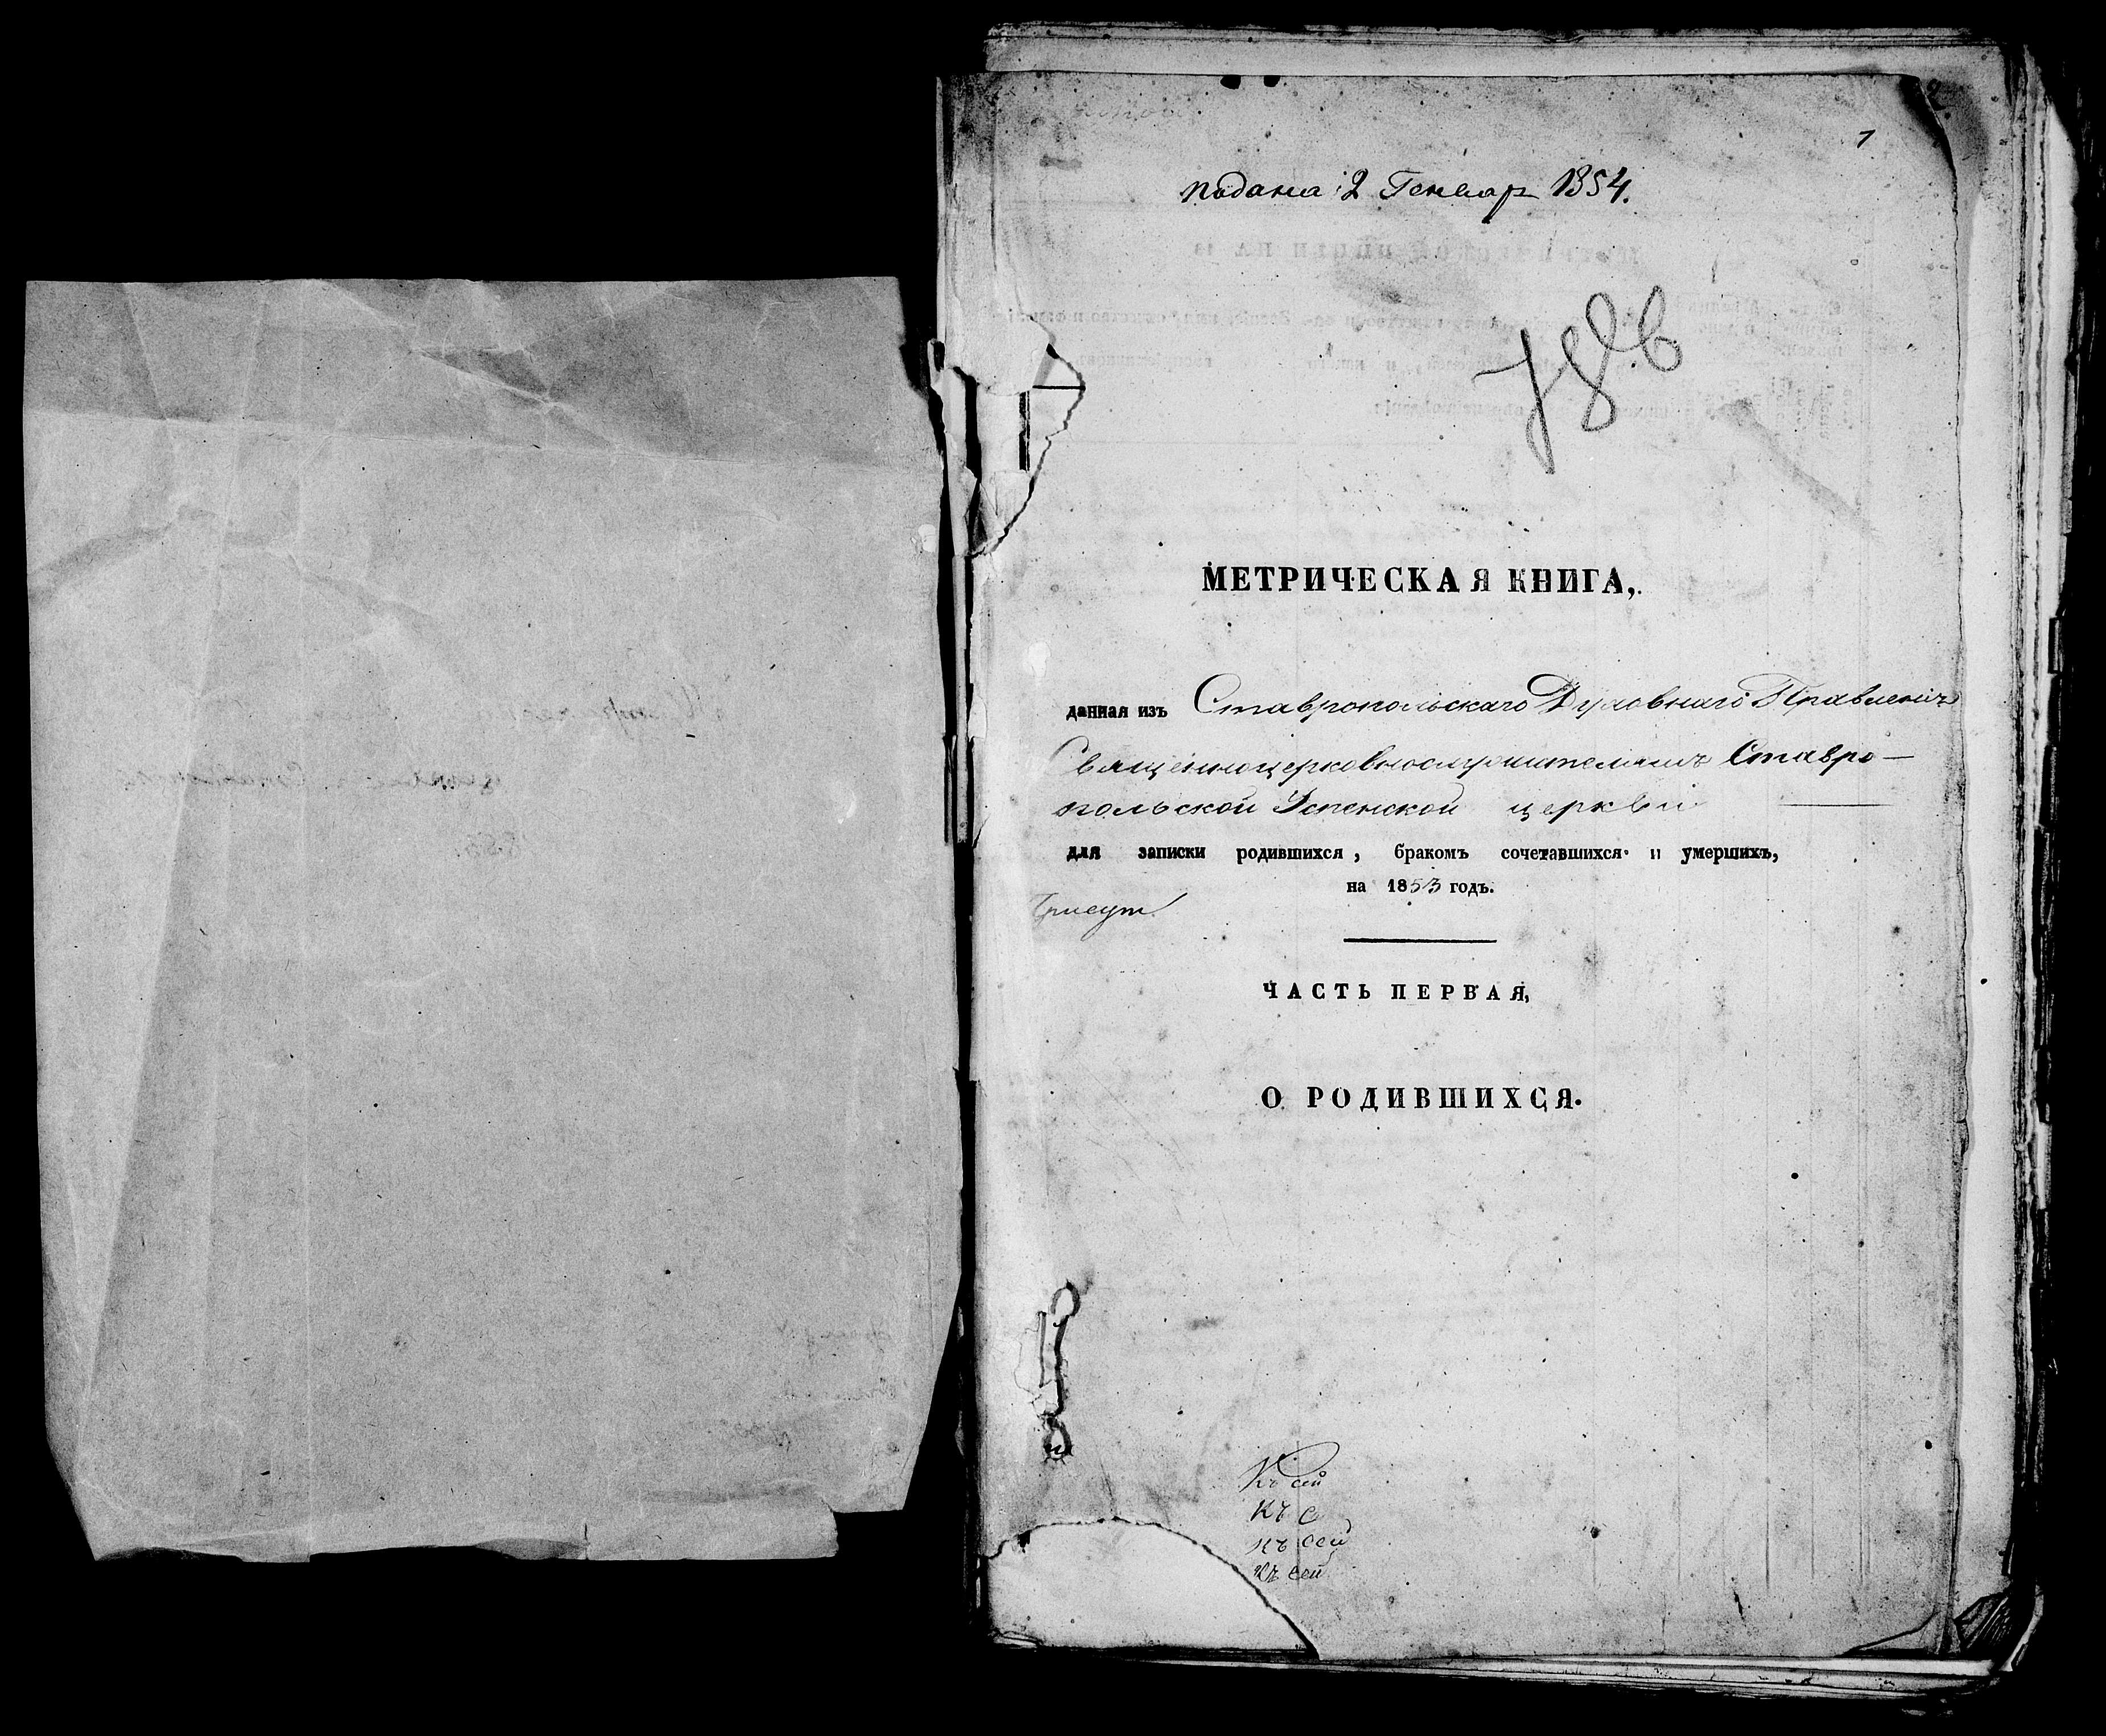 2
1
подана 2 Генвар 1854.
МЕТРИЧЕСКАЯ КНИГА,
данная изъ Ставропольскаго Духовнаго Правленія
Священноцерковнослужителямъ Ставро-
польской Успенской церкви
для записки родившихся, бракомъ сочетавшихся и умершихъ,
на 1853 годъ.
ЧАСТЬ ПЕРВАЯ,
О РОДИВШИХСЯ.
Къ сей
Къ с
къ сей
Къ сей